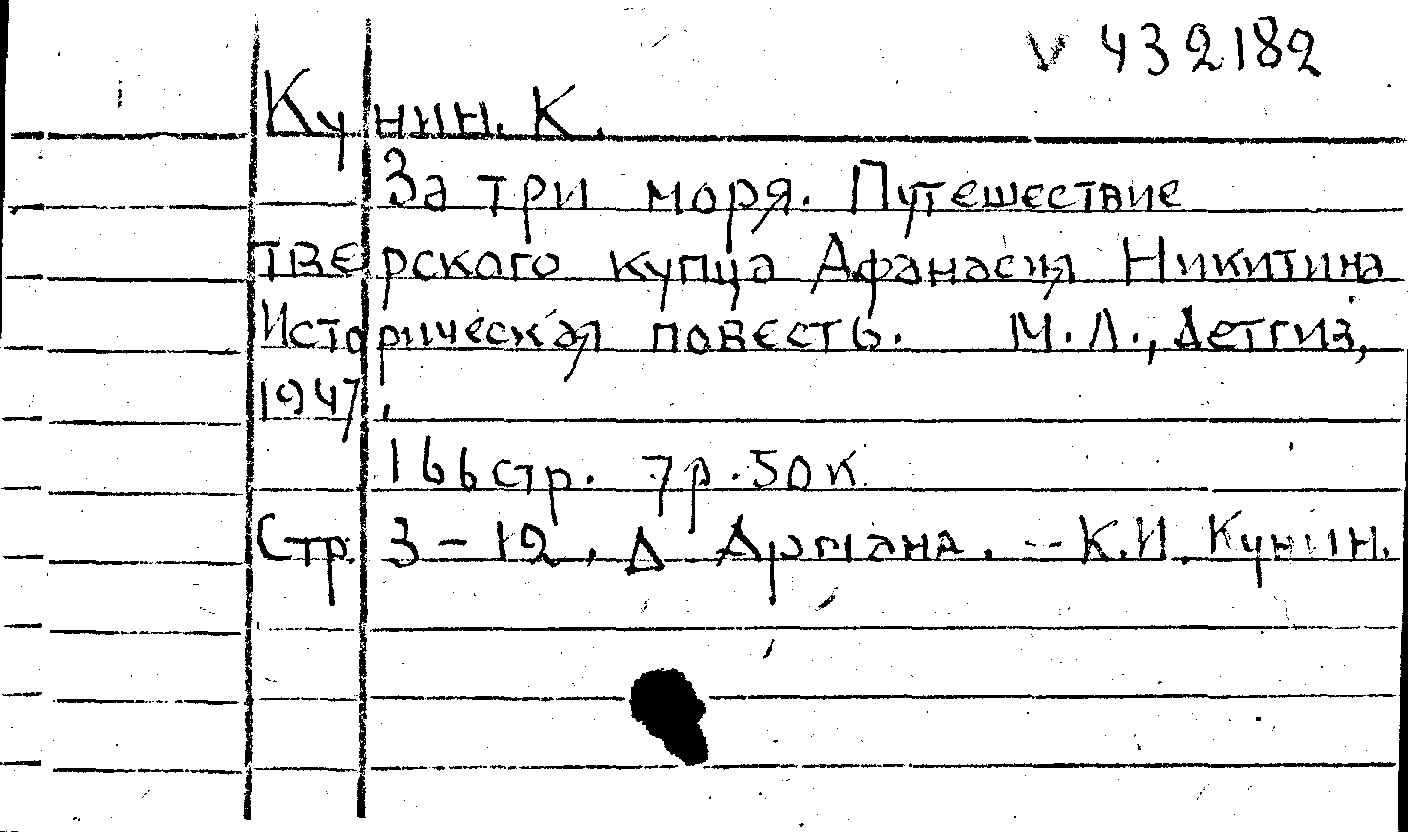 V 432182
Кунин. К.
За три моря. Путешествие
тверского купца Афанасия Никитина
Историческая повесть. М.Л., Детгиз,
1947.
166 стр. 7р.50к.
Стр. 3 – 12, Д Аргмана. -- К.И. Кунин.